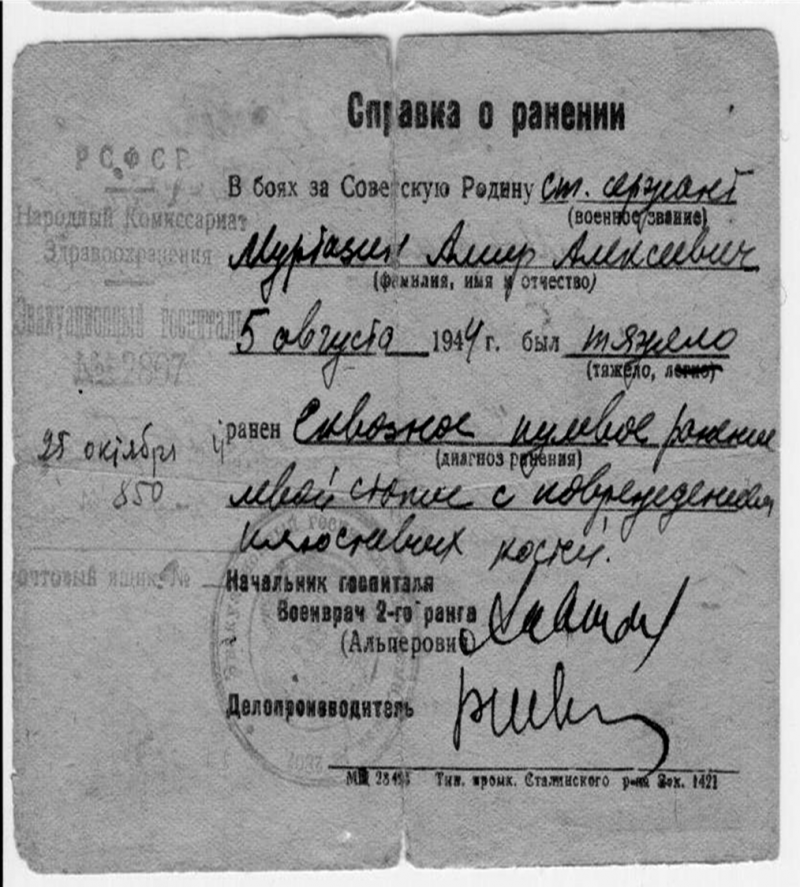 Справка о ранении
РСФСР
Народный Комиссариат
Здравоохранения
Эвакуационный госпиталь
№ 2897
25 октября 4
850
почтовый ящик №
В боях за Советскую Родину ст. сержант
(военное звание)
Муртазин Амир Алексеевич
(фамилия, имя и отчество)
5 августа 1944 г. был тяжело
(тяжело, легко)
ранен Сквозное пулевое ранение
(диагноз ранения)
левой стопы с повреждением
плюсневых костей.
Начальник госпиталя
Военврач 2-го ранга
(Альперович)
Делопроизводитель
Тип. промк. Сталинского р-на Зак. 1421